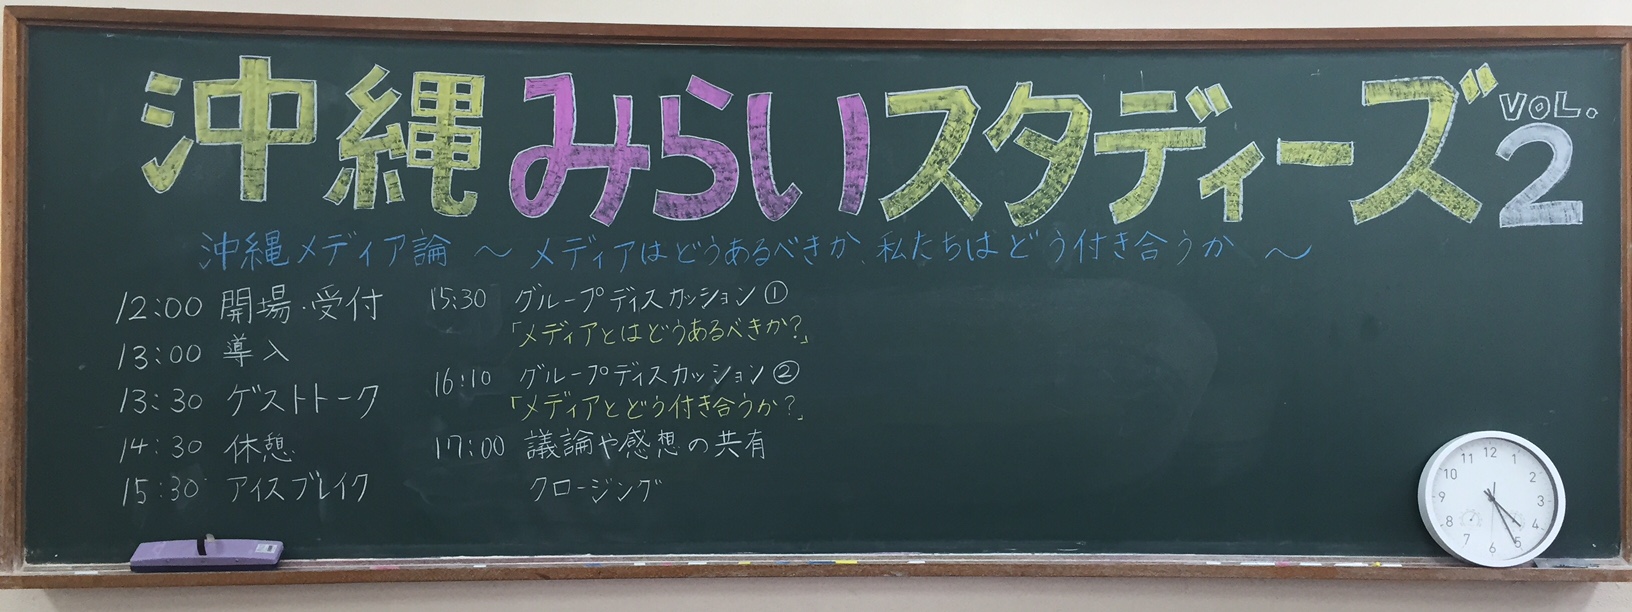 沖縄みらいスタディーズ VOL.2
沖縄メディア論 〜 メディアはどうあるべきか、私たちはどう付き合うか 〜
12:00 開場・受付
13:00 導入
13:30 ゲストトーク
14:30 休憩
15:30 アイスブレイク
15:30 グループディスカッション①
「メディアとはどうあるべきか?」
16:10 グループディスカッション②
「メディアとどう付き合うか?」
17:00 議論や感想の共有
クロージング
12
1
2
3
4
5
6
7
8
9
10
11